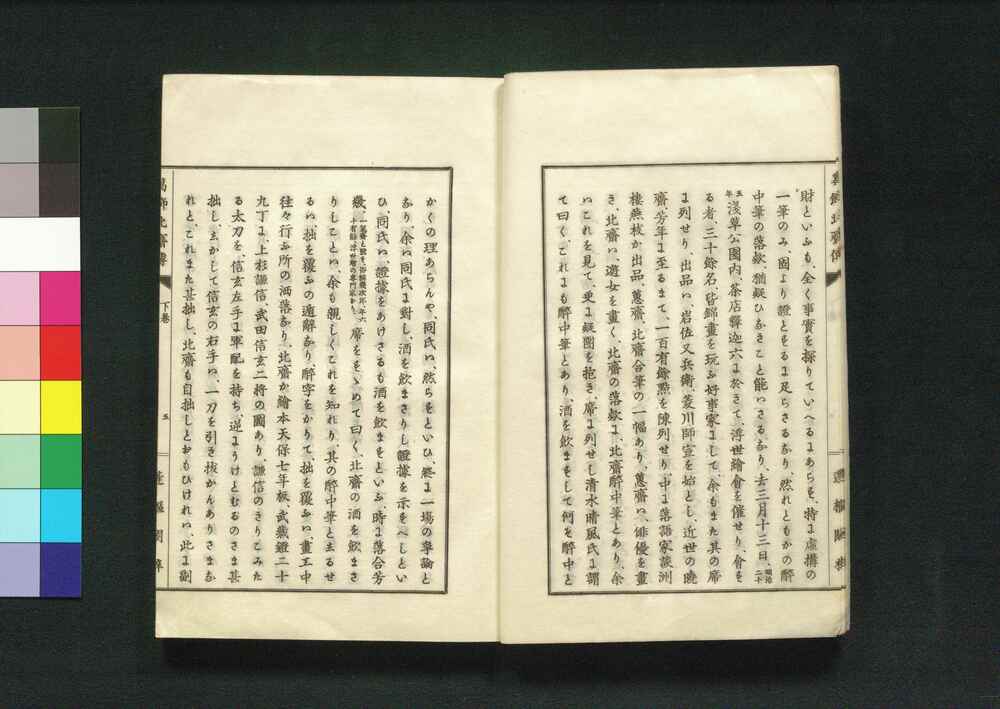 財といふも、全く事實を探りていへるにあらず、特に虚構の
一筆のみ、固より證とするに足らざるなり、然れともかの醉
中筆の落欵、猶疑ひなきこと能はさるなり、去三月十三日、明治二十
五年淺草公園内、茶店釋迦六に於きて、浮世繪會を催せり、會を
る者、三十餘名、皆錦畫を玩ふ好事家にして、余もまた其の席
に列せり、出品は、岩佐又兵衛、菱川師宣を始とし、近世の曉
齋芳年に至るまて、一百有餘點を陳列せり、中に落語家談洲
樓燕枝か出品、蕙齋、北齋合筆の一幅あり、蕙齋は、俳優を畫
き、北齋は、遊女を畫く、北齋の落欵に、北齋醉中筆とあり、余
はこれを見て、更に疑團を抱き、席に列せし清水晴風氏に謂
て曰く、これにも醉中筆とあり、酒を飲ますして何を醉中と
かくの理あらんや、同氏は、然らずといひ、終に一場の爭論と
なり、余は同氏に對し、酒を飲まさりし證據を示すべしとい
ひ、同氏は、證據をあけさるも酒を飲ますといふ、時に落合芳
幾、一蕙齋と號す、俗稱幾次郎、年六十有餘、浮世繪の專門家なり、席をすゝめて曰く、北齋の酒を飲まさ
りしことは、余も親しくこれを知れり、其の醉中筆と書るせ
るは、拙を覆ふの遁辭なり、醉字をかりて、拙を覆ふは、畫工中
往々行ふ所の洒落なり、北齋か繪本天保七年板、武藏鐙二十
九丁に、上杉謙信、武田信玄二將の圖あり、謙信のきりこみた
る太刀を、信玄左手に軍配を持ち、逆にうけとむるのさま甚
拙し、しかして信玄の右手は、一刀を引き拔かんありさまな
れと、これまた甚拙し、北齋も自拙しとおもひけれは、此に副
下卷
五